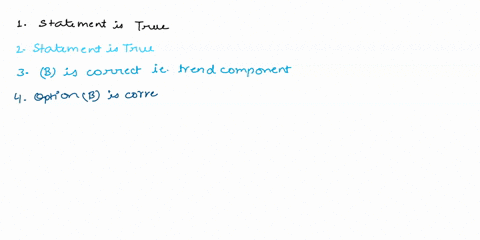 1. Statement is True
2. Statement is True
3. (B) is correct ie. trend component
4. Option (B) is corre